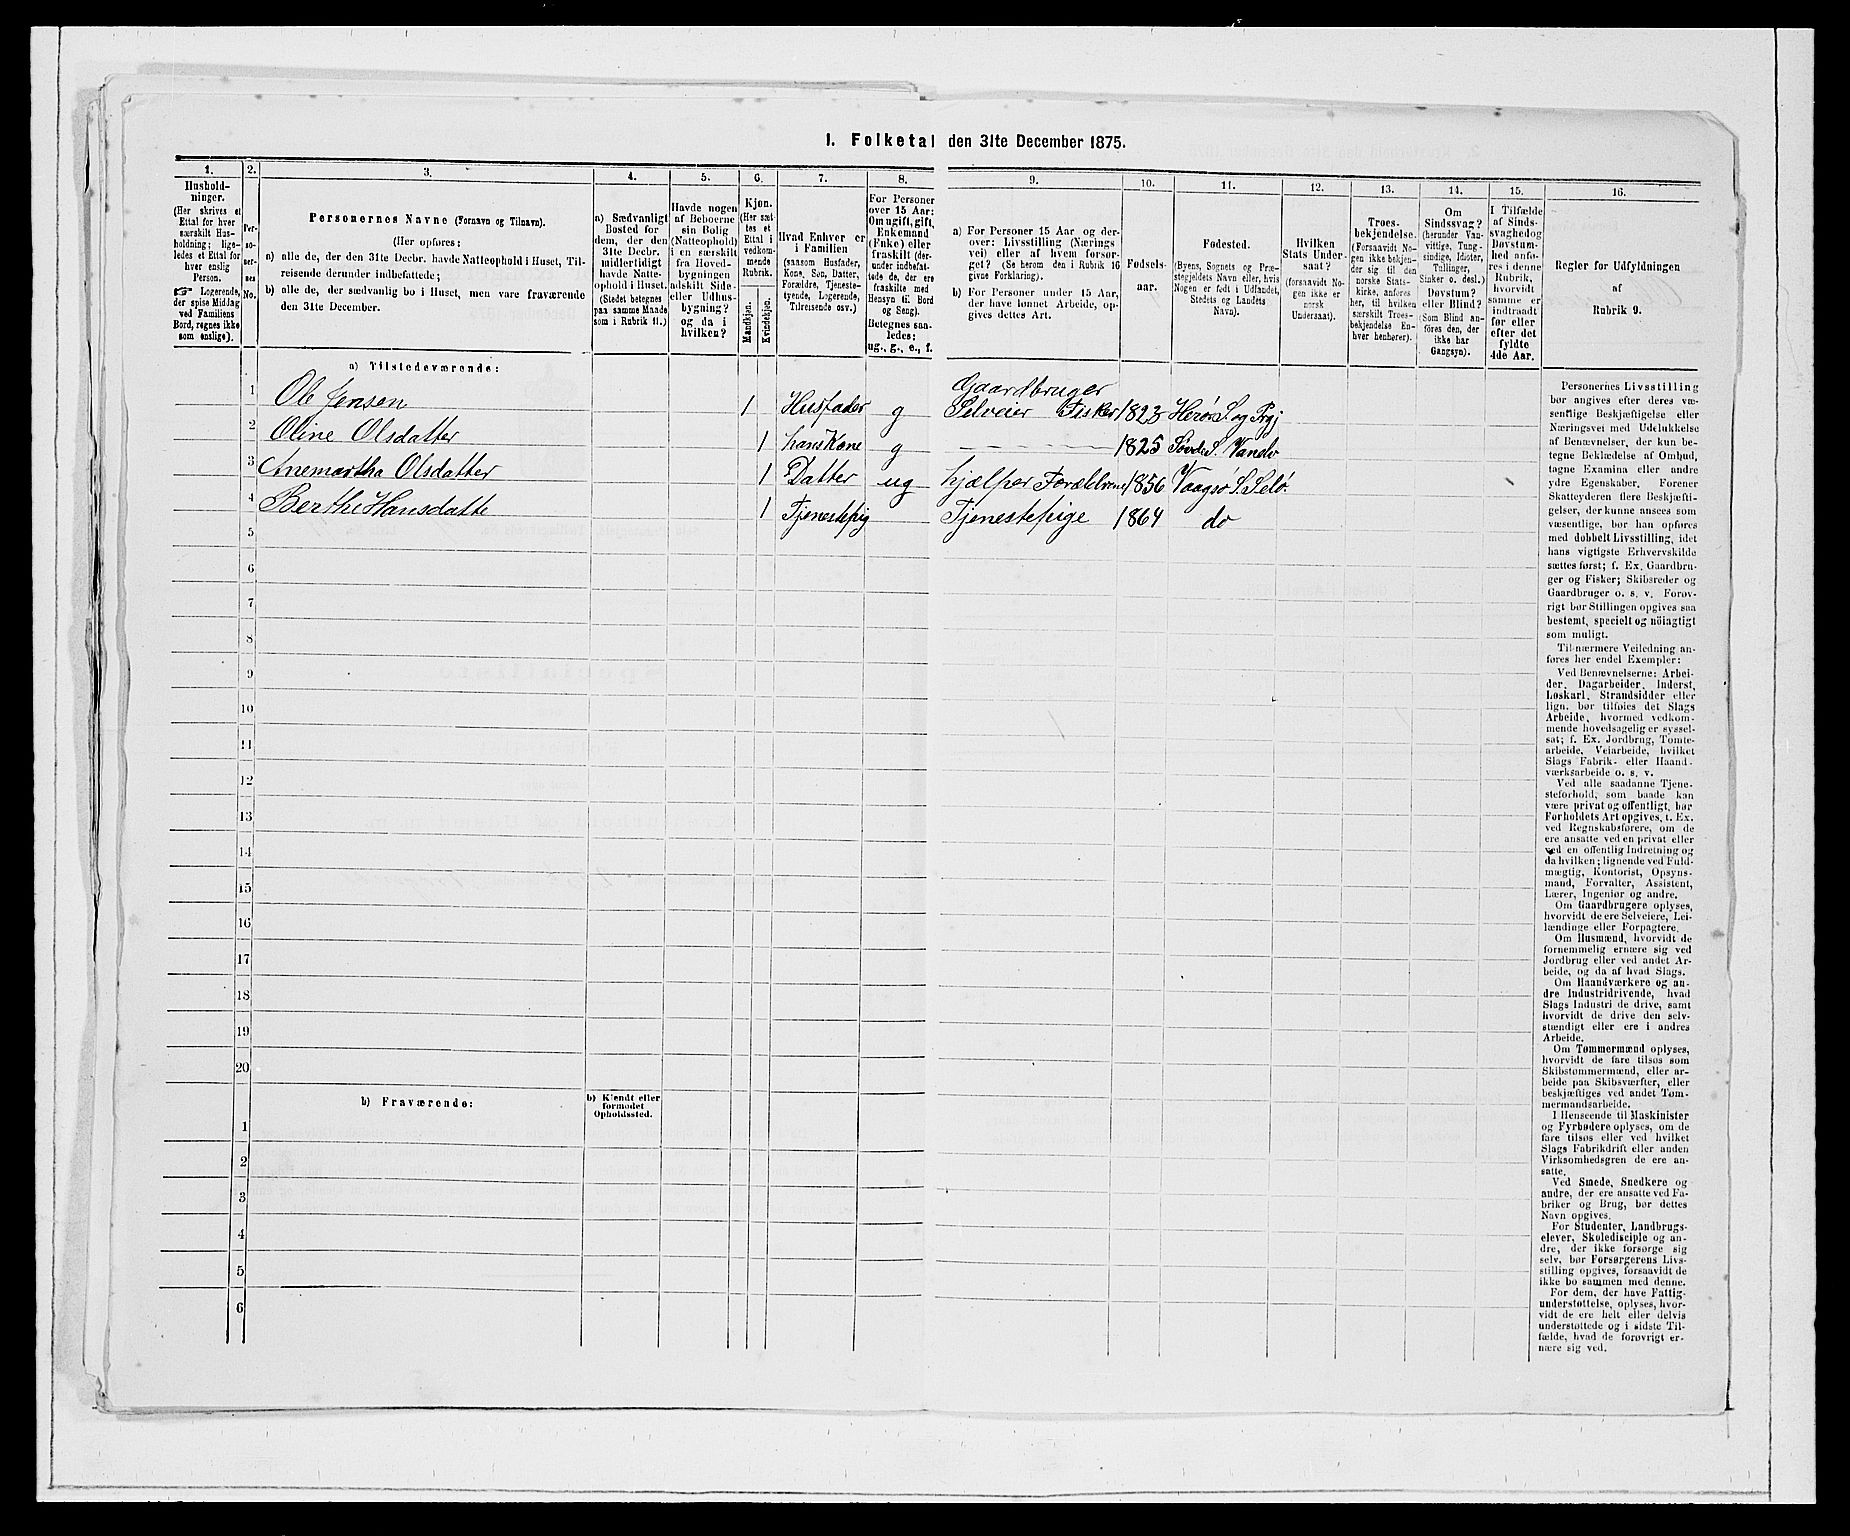 I. Folketal den 31te December 1875.
1.
Hushold-
ninger.
(Her skrives et
Ettal for hver
særskilt Hus-
holdning; lige-
ledes et Ettal for
hver enslig
Person.
☞ Logerende,
der spise Middag
ved Familiens
Bord, regnes ikke
som enslige).
2.
Per-
so-
ner-
nes
No.
3.
Personernes Navne (Fornavn og Tilnavn).
(Her opføres:
a) alle de, der den 31te Decbr. havde Natteophold i Huset, Til-
reisende derunder indbefattede;
b) alle de, der sædvanlig bo i Huset, men vare fraværende
den 31te December.
4.
a) Sædvanligt
Bosted for
dem, der den
31te Decbr.
midlertidigt
havde Natte-
ophold i Huset.
(Stedet betegnes
paa samme Maade
som i Rubrik 11.)
5.
Havde nogen
af Beboerne
sin Bolig
(Natteophold)
i en særskilt
fra Hoved-
bygningen
adskilt Side-
eller Udhus-
bygning?
og da i
hvilken?
6.
Kjøn.
(Her sæt-
tes et
Ettal i
vedkom-
mende
Rubrik.
Mandkjøn.
Kvindekjøn.
7.
Hvad Enhver er
i Familien
(saasom Husfader,
Kone, Søn, Datter,
Forældre, Tjeneste-
tyende, Logerende,
Tilreisende osv.)
8.
For Personer
over 15 Aar:
Om ugift, gift,
Enkemand
(Enke) eller
fraskilt (der-
under indbefat-
tede de, der ere
fraskilte med
Hensyn til Bord
og Seng).
Betegnes saa-
ledes:
ug., g., e., f.
9.
a) For Personer 15 Aar og der-
over: Livsstilling (Nærings
vei) eller af hvem forsør-
get? (Se herom den i Rubrik 16
givne Forklaring).
b) For Personer under 15 Aar,
der have lønnet Arbeide, op-
gives dettes Art.
10.
Fødsels-
aar.
11.
Fødested.
(Byens, Sognets og Præ-
stegjeldets Navn eller, hvis
Nogen er født i Udlandet,
Stedets og Landets
Navn).
12.
Hvilken
Stats Under-
saat?
(forsaavidt No-
gen ikke er
norsk
Undersaat).
13.
Troes-
bekjendelse.
(Forsaavidt No-
gen ikke bekjen-
der sig til den
norske Stats-
kirke, anføres
her, til hvilken
særskilt Troes-
bekjendelse En-
hver henhører).
14.
Om
Sindssvag?
(herunder Van-
vittige, Tung-
sindige, Idioter,
Tullinger,
Sinker o. desl.)
Døvstum?
eller Blind?
(Som Blind an-
føres den, der
ikke har
Gangsyn).
15.
I Tilfælde
af Sinds-
svaghed og
Døvstum-
hed anfø-
res i denne
Rubrik,
hvorvidt
samme er
indtraadt
før eller
efter det
fyldte
4de Aar.
16.
Regler for Udfyldningen
af
Rubrik 9.
a) Tilstedeværende:
1 Ole Jensen 1 Husfader g Gaardbruger
Selveier Fisker 1823 Herø S. og Prgj
2 Oline Olsdatter 1 hans Kone g 1825 S. Vandv
3 Anemartha Olsdatter 1 Datter ug hjælper Forældrene 1856 Vaagsø S. Selø.
4 Berthe Hansdatte 1 Tjenestepig Tjenestepige 1864 do
5
6
7
8
9
10
11
12
13
14
15
16
17
18
19
20
b) Fraværende:
b) Kjendt eller
formodet
Opholdssted.
1
2
3
4
5
6
Personernes Livsstilling
bør angives efter deres væ-
sentlige Beskjæftigelse eller
Næringsvei med Udelukkelse
af Benævnelser, der kun be-
tegne Beklædelse af Ombud,
tagne Examina eller andre
ydre Egenskaber. Forener
Skatteyderen flere Beskjæfti-
gelser, der kunne ansees som
væsentlige, bør han opføres
med dobbelt Livsstilling, idet
hans vigtigste Erhvervskilde
sættes først; f. Ex. Gaardbru-
ger og Fisker; Skibsreder og
Gaardbruger o. s. v. Forøv-
rigt bør Stillingen opgives saa
bestemt, specielt og nöiagtigt
som muligt.
Til nærmere Veiledning an-
føres her endel Exempler:
Ved Benævnelserne: Arbei-
der, Dagarbeider, Inderst,
Løskarl, Strandsidder eller
lign. bør tilføies det Slags
Arbeide, hvormed vedkom-
mende hovedsagelig er syssel-
sat; f. Ex. Jordbrug, Tomte-
arbeide, Veiarbeide, hvilket
Slags Fabrik- eller Haand-
værksarbeide o. s. v.
Ved alle saadanne Tjene-
steforhold, som baade kan
være privat og offentligt, bør
Forholdets Art opgives, t. Ex.
ved Regnskabsførere, om de
ere ansatte ved en privat eller
ved en offentlig Indretning og
da hvilken; lignende ved Fuld-
mægtig, Kontorist, Opsyns-
mand, Forvalter, Assistent,
Lærer, Ingeniør og andre.
Om Gaardbrugere oplyses,
hvorvidt de ere Selveiere, Lei-
lændinge eller Forpagtere.
Om Husmænd, hvorvidt de
fornemmelig ernære sig ved
Jordbrug eller ved andet Ar-
beide, og da af hvad Slags.
Om Haandværkere og an-
dre Industridrivende, hvad
Slags Industri de drive, samt
hvorvidt de drive den selv-
stændigt eller ere i andres
Arbeide.
Om Tømmermænd oplyses,
hvorvidt de fare tilsøs som
Skibstømmermænd, eller ar-
beide paa Skibsværfter, eller
beskjæftiges ved andet Tøm-
mermandsarbeide.
I Henseende til Maskinister
og Fyrbødere oplyses, om de
fare tilsøs eller ved hvilket
Slags Fabrikdrift eller anden
Virksomhedsgren de ere an-
satte.
Ved Smede, Snedkere og
andre, der ere ansatte ved Fa-
briker og Brug, bør dettes
Navn opgives.
For Studenter, Landbrugs-
elever, Skoledisciple og an-
dre, der ikke forsørge sig
selv, bør Forsørgerens Livs-
stilling opgives, forsaavidt de
ikke bo sammen med denne.
For dem, der have Fattig-
understøttelse, oplyses, hvor-
vidt de ere helt eller delvis
understøttede og i sidste Til-
fælde, hvad de forøvrigt er-
nære sig ved.